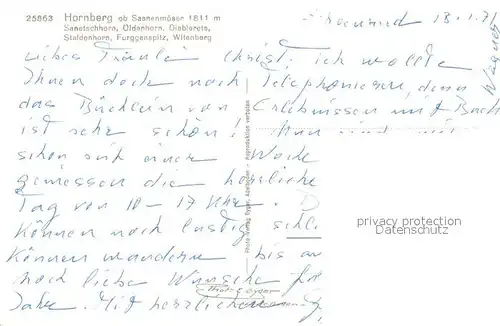 25863 Hornberg ob Saanenmöser 1811 m
Sanetschhorn, Oldenhorn, Diablerets,
Staldenhorn, Furggenspitz, Witenberg
18.1.71
Liebes Fräulein Christ! ich wollte
Ihnen doch noch telephonieren, denn
das Büchlein von Erlebnissen mit Buch
ist sehr schön! Nun sind wir
schon seit einer Woche
geniessen die herrliche
Tag von 10 - 17 Uhr. D
können noch lustig schl
können wandern bis an
noch liebe Wünsche für
Jahr. Mit herzlichen
Photo-Verlag Gyger, Adelboden - Reproduktion verboten
privacy protection
Datenschutz